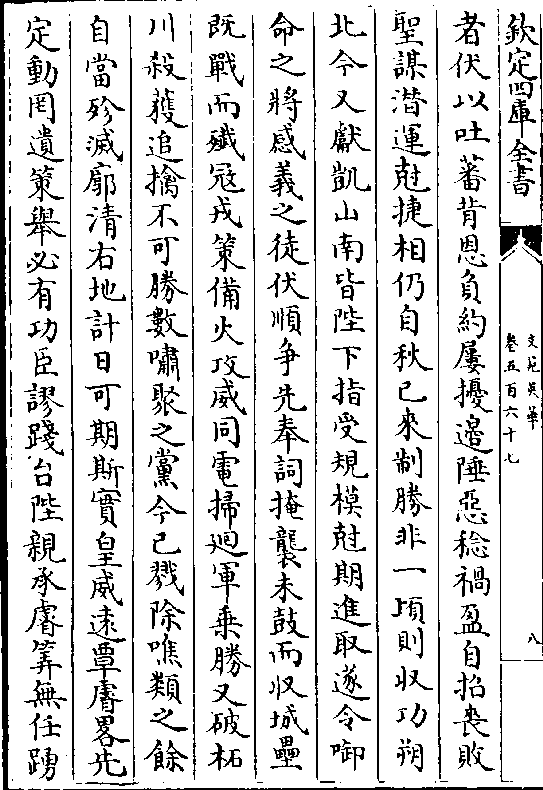 欽定四庫全書
文苑英華
卷五百六十七
八
者伏以吐蕃背恩負約屢擾邉陲惡稔禍盈自招喪敗
聖謀潛運尅捷相仍自秋已來制勝非一頃則收功朔
北今又獻凱山南皆陛下指受規模尅期進取遂令啣
命之將感義之徒伏順争先奉詞掩襲未鼓而收城壘
既戰而殱冦戎策備火攻威同電掃迴軍乗勝又破柘
川殺獲追擒不可勝數嘯聚之黨今已戮除噍類之餘
自當殄滅廓清右地計日可期斯實皇威逺覃睿畧先
定動罔遺策舉必有功臣謬踐台陛親承睿筭無任踴